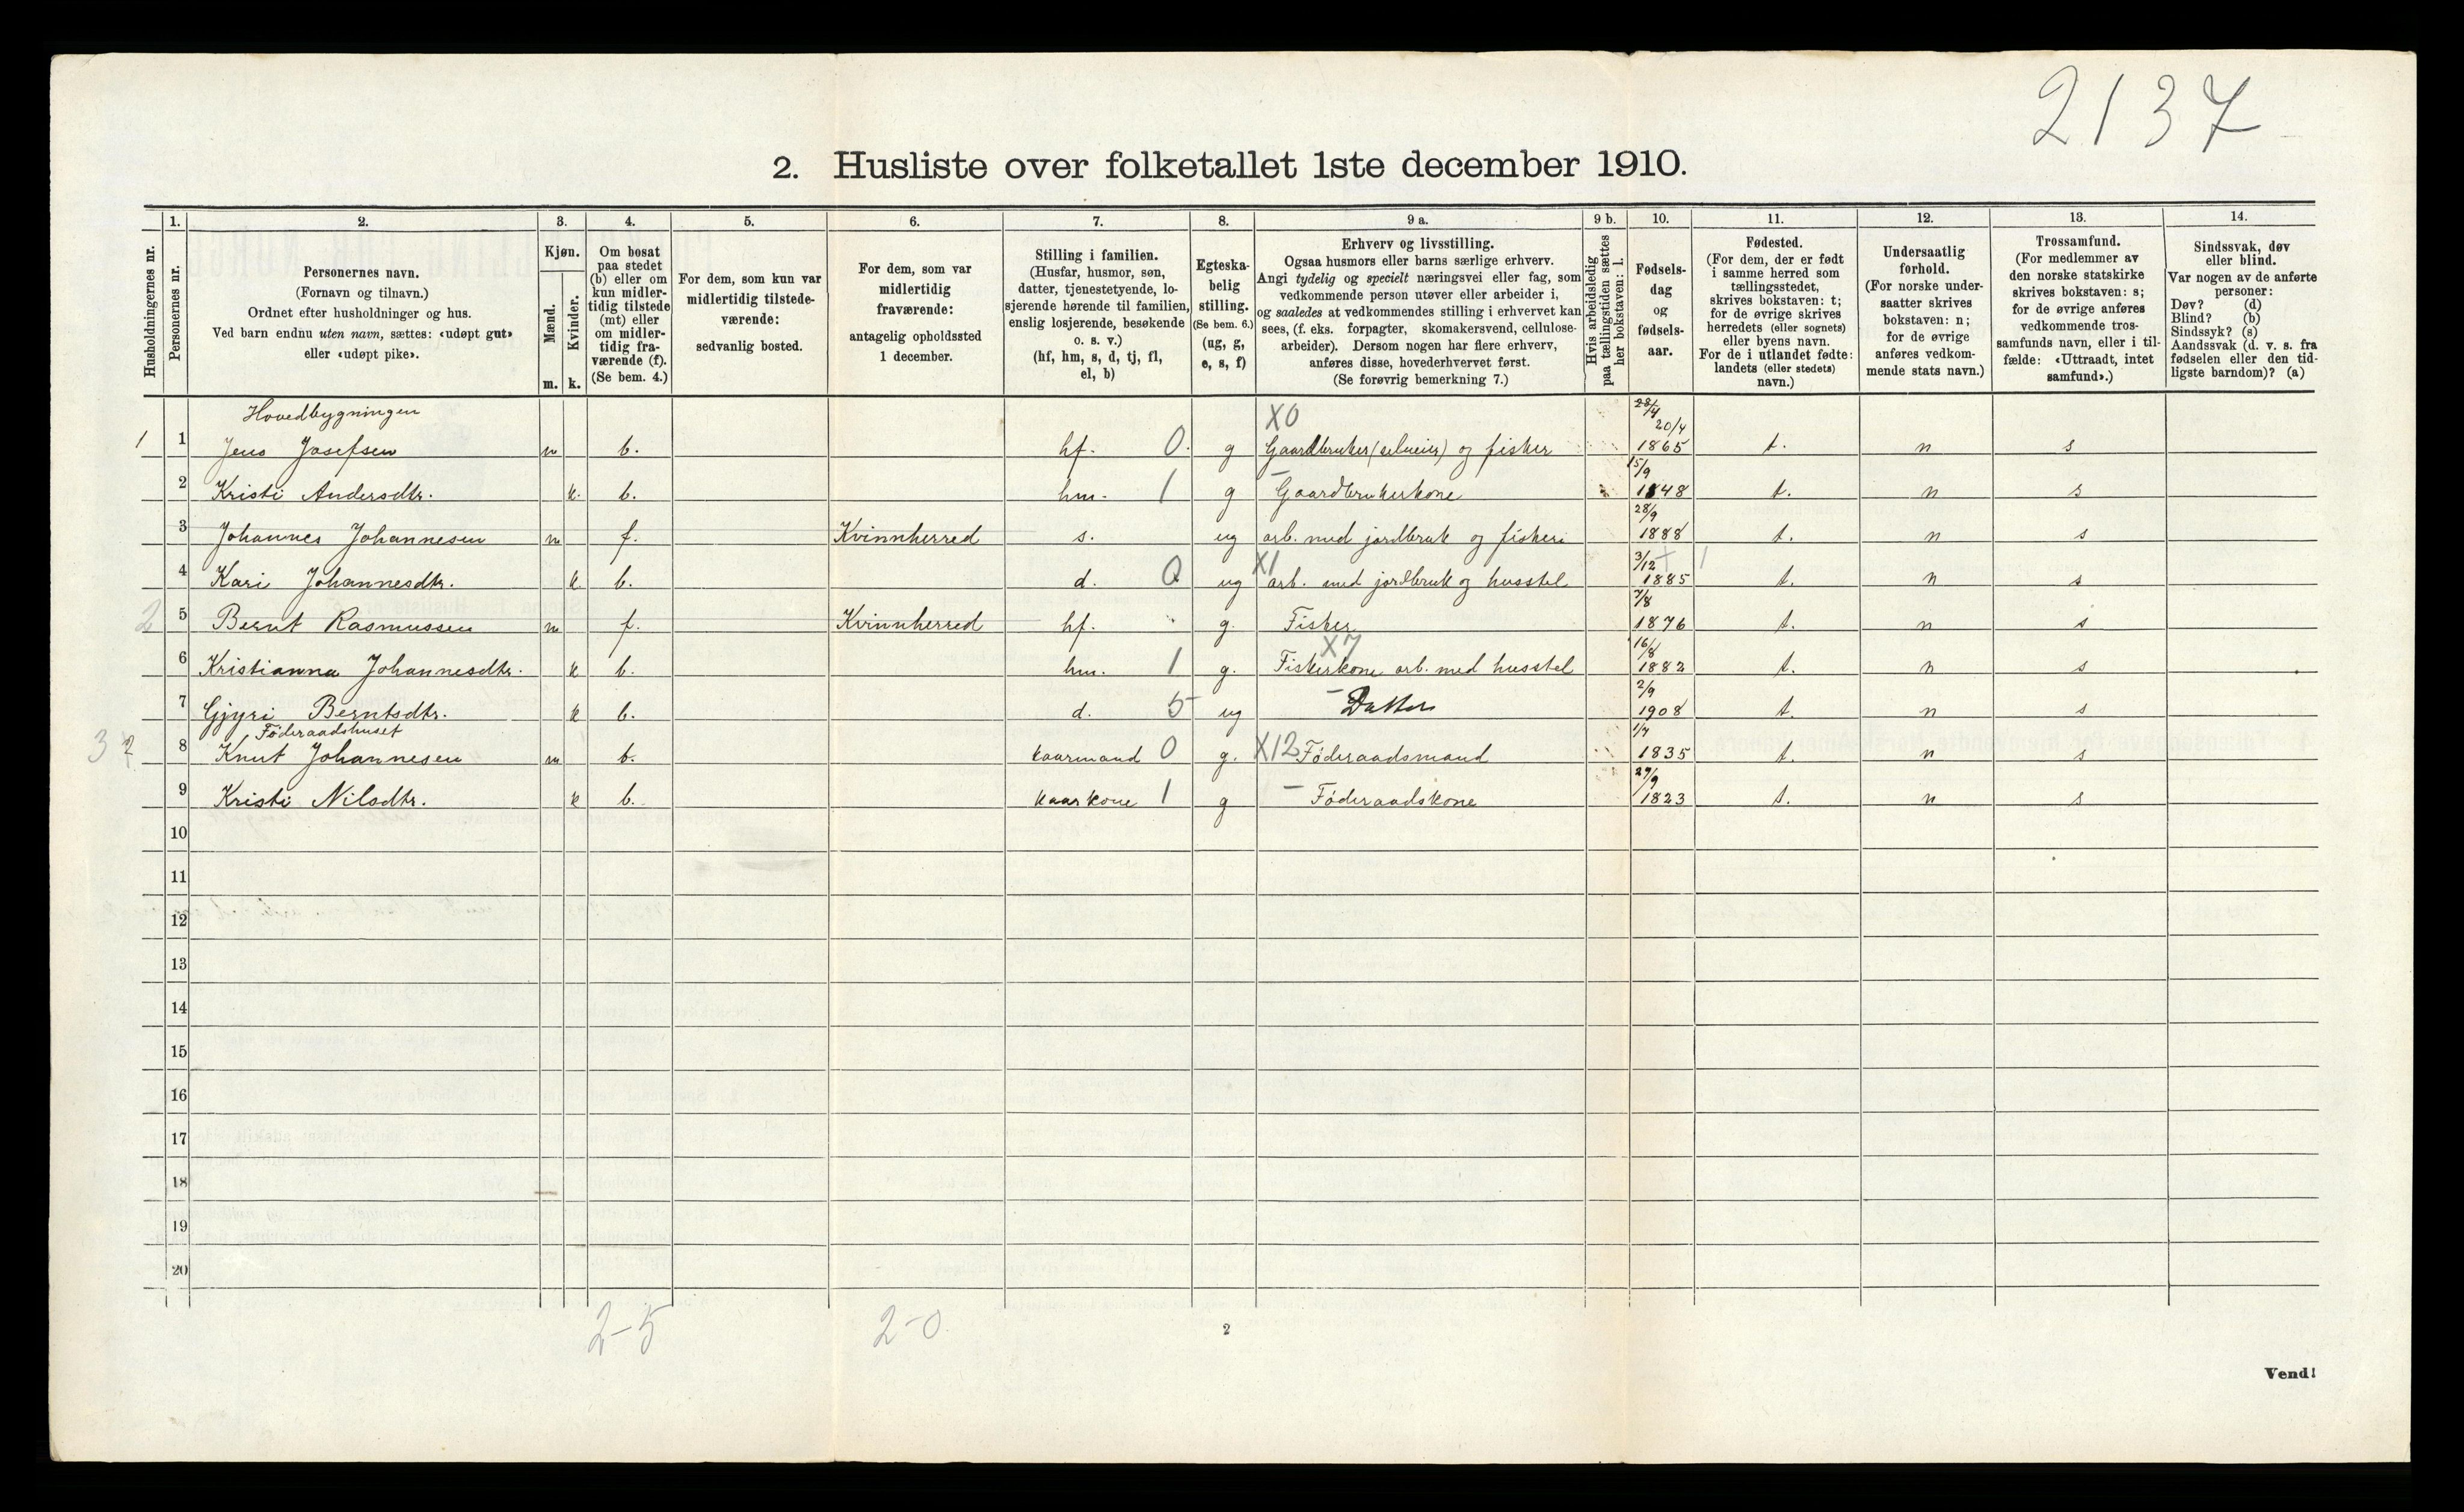 2137
2. Husliste over folketallet 1ste december 1910.
Husholdningernes nr.
1. Personernes nr.
2. Personernes navn. (Fornavn og tilnavn.) Ordnet efter husholdninger og hus. Ved barn endnu uten navn, sættes: «udøpt gut» eller «udøpt pike».
3. Kjøn. Mænd. m. Kvinder. k.
4. Om bosat paa stedet (b) eller om kun midler-tidig tilstede (mt) eller om midler-tidig fra-værende (f). (Se bem. 4.)
5. For dem, som kun var midlertidig tilstede-værende: sedvanlig bosted.
6. For dem, som var midlertidig fraværende: antagelig opholdssted 1 december.
7. Stilling i familien. (Husfar, husmor, søn, datter, tjenestetyende, lo-sjerende hørende til familien, enslig losjerende, besøkende o. s. v.) (hf, hm, s, d, tj, fl, el, b)
8. Egteska-belig stilling. (Se bem. 6.) (ug, g, e, s, f)
9 a. Erhverv og livsstilling. Ogsaa husmors eller barns særlige erhverv. Angi tydelig og specielt næringsvei eller fag, som vedkommende person utøver eller arbeider i, og saaledes at vedkommendes stilling i erhvervet kan sees, (f. eks. forpagter, skomakersvend, cellulose-arbeider). Dersom nogen har flere erhverv, anføres disse, hovederhvervet først. (Se forøvrig bemerkning 7.)
9 b. Hvis arbeidsledig paa tællingstiden sættes her bokstaven: l.
10. Fødsels-dag og fødsels-aar.
11. Fødested. (For dem, der er født i samme herred som tællingsstedet, skrives bokstaven: t; for de øvrige skrives herredets (eller sognets) eller byens navn. For de i utlandet fødte: landets (eller stedets) navn.)
12. Undersaatlig forhold. (For norske under-saatter skrives bokstaven: n; for de øvrige anføres vedkom-mende stats navn.)
13. Trossamfund. (For medlemmer av den norske statskirke skrives bokstaven: s; for de øvrige anføres vedkommende tros-samfunds navn, eller i til-fælde: «Uttraadt, intet samfund».)
14. Sindssvak, døv eller blind. Var nogen av de anførte personer: Døv? (d) Blind? (b) Sindssyk? (s) Aandssvak (d. v. s. fra fødselen eller den tid-ligste barndom)? (a)
Hovedbygningen
1 1 Jens Josefsen m b. hf. 0. g X0 Gaardbruker (selveier) og fisker 28/4 20/4 1865 t. n s
2 Kristi Andersdtr. k. b. hm. 1 g – Gaardbrukerkone 15/9 1848 t. n s
3 Johannes Johannesen m f. Kvinnherred s. ug arb. med jordbruk og fiskeri 28/9 1888 t. n s
4 Kari Johannesdtr. k b. d. 0 ug X1 arb. med jordbruk og husstel 3/12 1885 + 1 t. n s
2 5 Bernt Rasmussen m f. Kvinnherred hf. g. Fisker 7/8 1876 t. n s
6 Kristianna Johannesdtr. k b. hm. 1 g. X7 Fiskerkone arb. med husstel 16/8 1882 t. n s
7 Gjyri Berntsdtr. k b. d. 5 ug – Datter 2/9 1908 t. n s
Føderaadshuset
3 2 8 Knut Johannesen m b. kaarmand 0 g. X12 Føderaadsmand 1/7 1835 t. n s
9 Kristi Nilsdtr. k b. kaarkone 1 g – Føderaadskone 27/9 1823 t. n s
10
11
12
13
14
15
16
17
18
19
20
2-5 2-0
2
Vend!